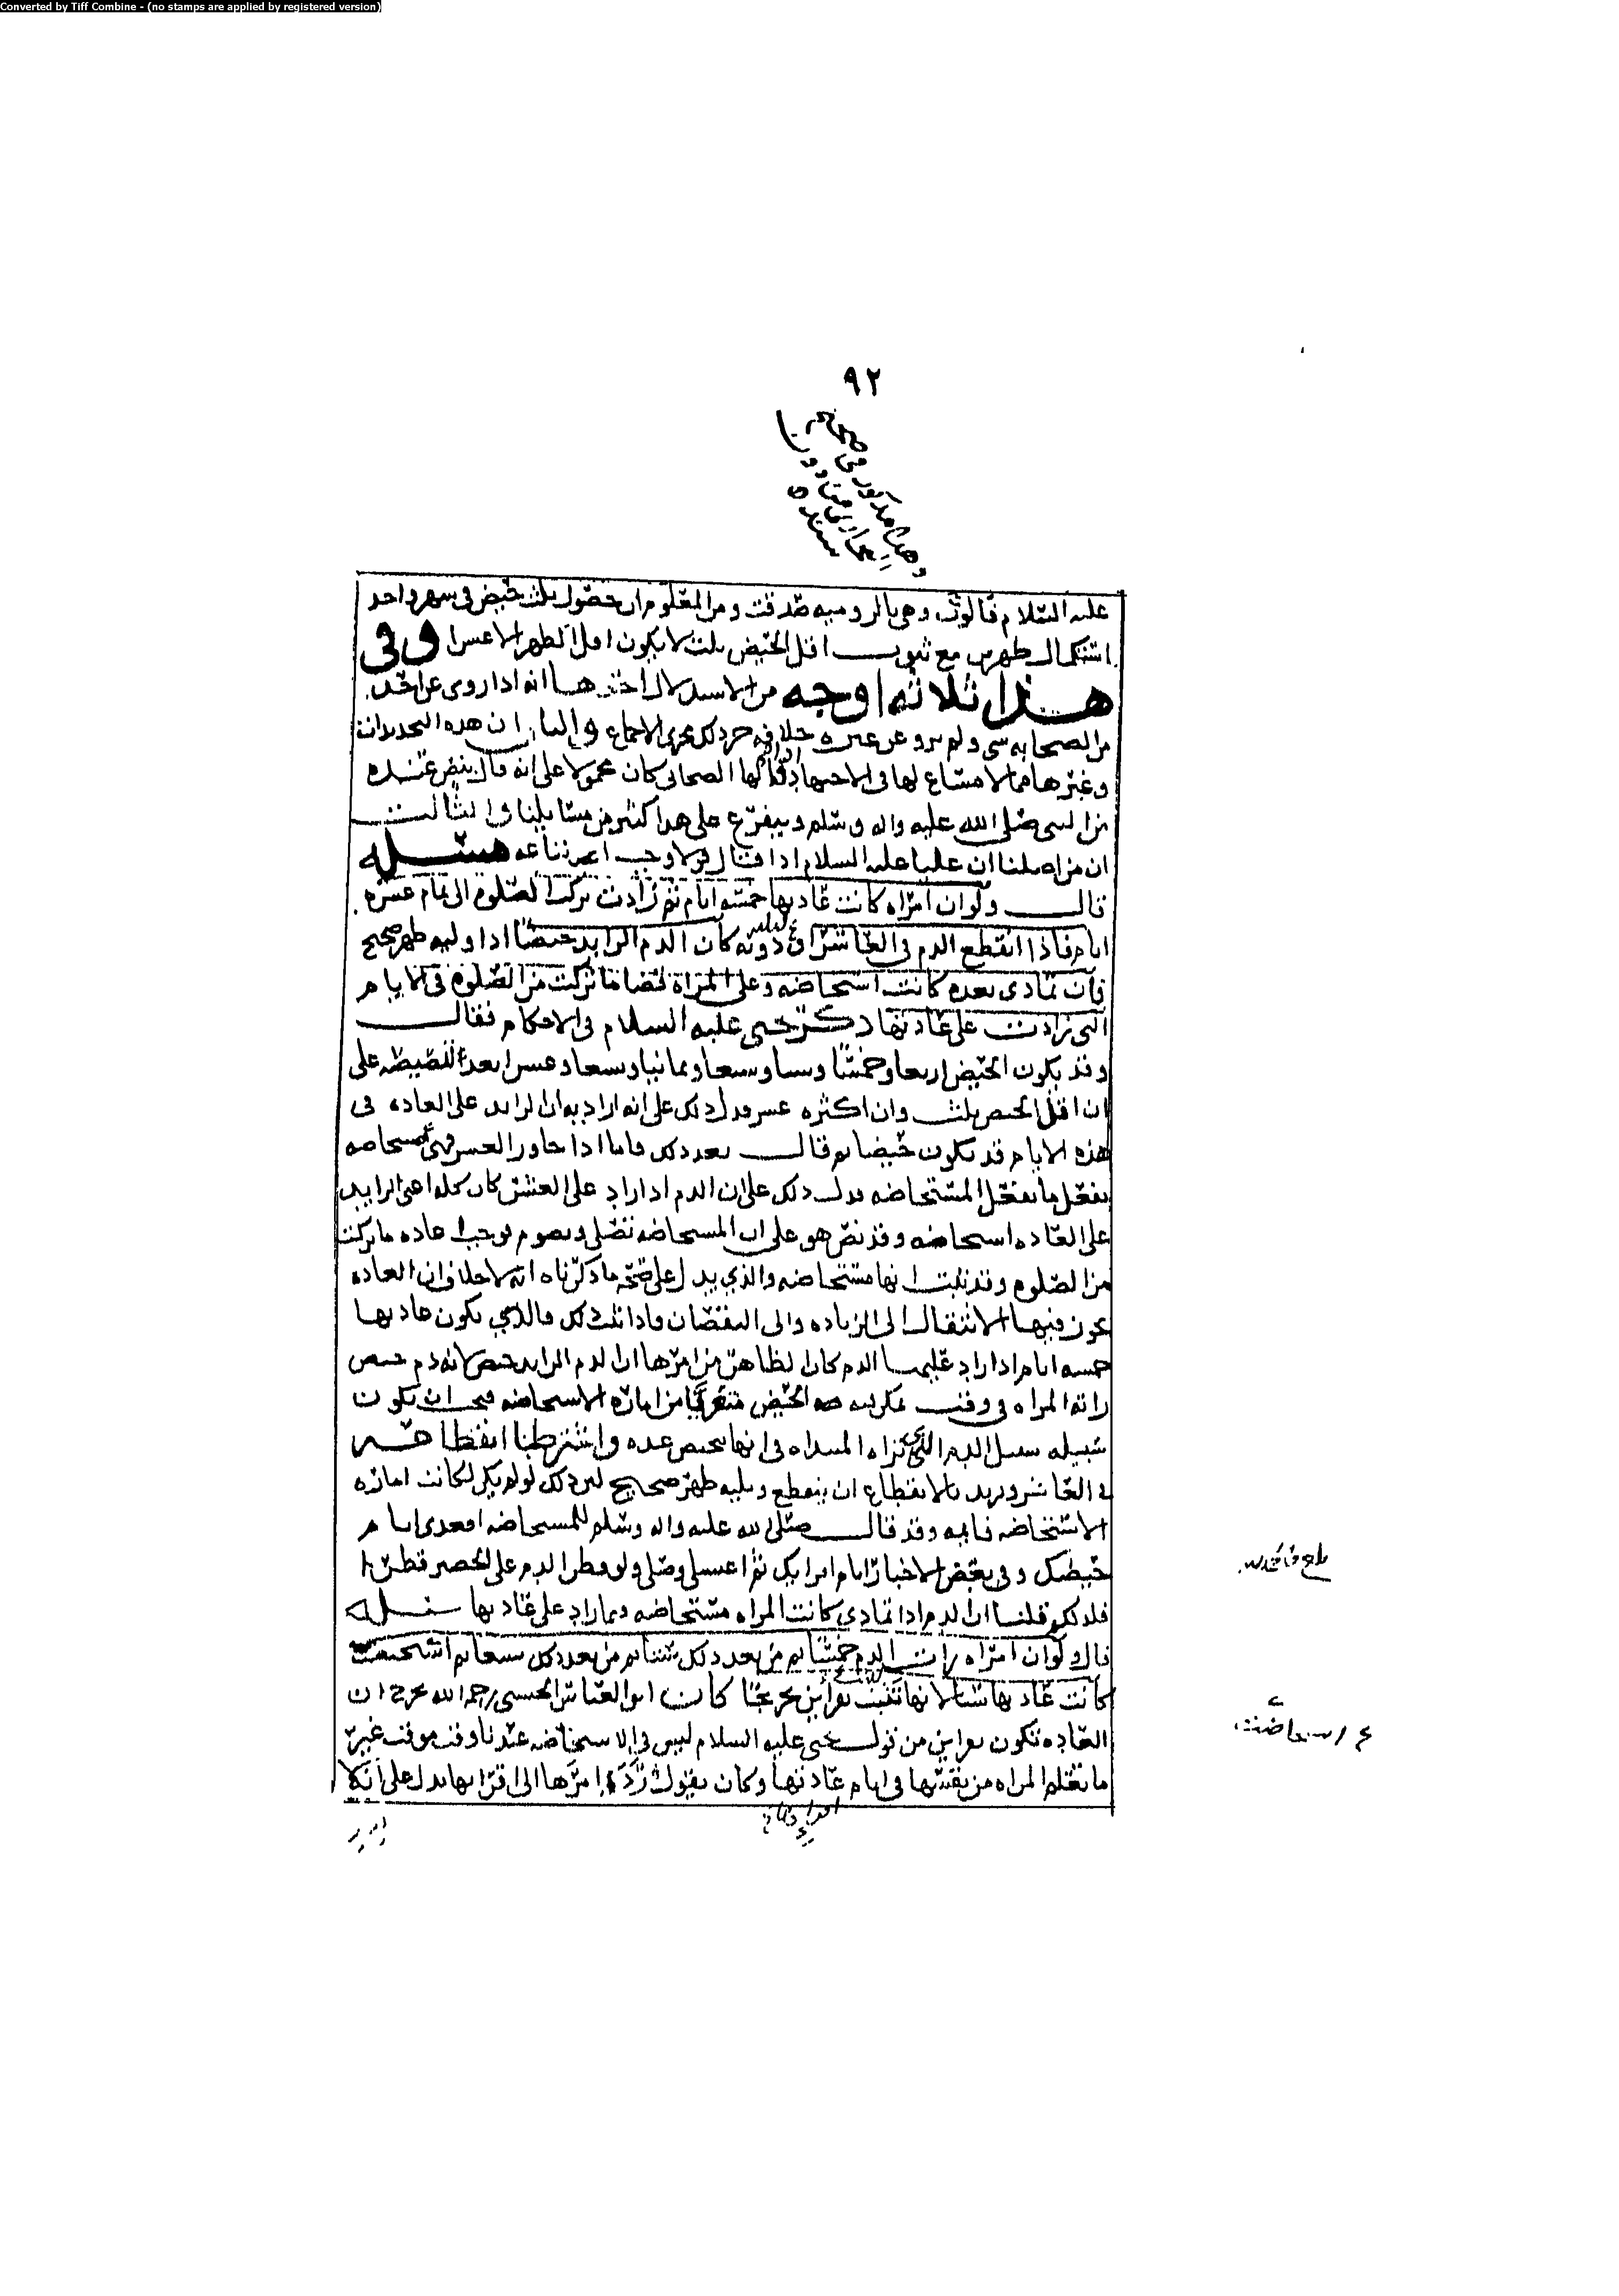 Converted by Tiff Combine - (no stamps are applied by registered version)
٩٢
عليه السلام قالون وهي بالروميه صدقت ومن المعلوم ان حصول ثلث حيض في شهر واحد
استكمال طهرين مع ثبوت اقل الحيض ثلث لا يكون اقل الطهر الا عشرا وفي
هذا ثلاثه اوجه من الاستدلال احدها انه اذا روي عن احد
من الصحابه شي ولم يرو عن غيره خلافه جرى ذلك مجرى الاجماع والثاني ان هذه التحديدات
وغيرها مما لا مساغ لها في الاجتهاد اذا قالها الصحابي كان محمولا على انه قال بنص عنده
من النبي صلى الله عليه واله وسلم ويتفرع على هذا كثير من مسايلنا والثالث
ان من اصلنا ان عليا عليه السلام اذا قال قولا وجب اتباعه مسئله
قال ولو ان امراه كانت عادتها خمسه ايام ثم زادت تركت الصلوه الى تمام عشره
ايام فاذا انقطع الدم في العاشر او دونه كان الدم الزايد حيضا اذا وليه طهر صحيح
فان تمادى بعده كانت استحاضه وعلى المراة قضا ما تركت من الصلوه في الايام
التي زادت على عادتها ذكر يحيى عليه السلام في الاحكام فقال
وقد يكون الحيض اربعا وخمسا وستا وسبعا وثمانيا وتسعا وعشرا بعد التنصيص على
ان اقل الحيض ثلث وان اكثره عشر فدل ذلك على انه اراد به ان الزايد على العاده في
هذه الايام قد يكون حيضا ثم قال بعد ذلك فاما اذا جاوز العشر فهي مستحاضه
تفعل ما تفعل المستحاضه فدل ذلك على ان الدم اذا زاد على العشر كان كله اعني الزايد
على العاده استحاضه وقد نص هو على ان المستحاضه تصلي وتصوم فوجب اعاده ما تركت
من الصلوه وقد ثبت انها مستحاضه والذي يدل على صحه ما ذكرناه انه لا خلاف ان العاده
يجوز فيها الانتقال الى الزياده والى النقصان فاذا ثبت ذلك فالذي يكون عادتها
خمسه ايام اذا زاد عليها الدم كان الظاهر من امرها ان الدم الزايد حيض لانه دم حيض
راته المراه في وقت يمكن فيه الحيض متعريا من اماره الاستحاضه فيجب ان يكون
سبيله سبيل الدم الذي تراه المبتداه في انها تحيض عده واشترطنا انقطاعه
في العاشر ونريد بالانقطاع ان ينقطع ويليه طهر صحيح لان ذلك لو لم يكن لكانت اماره
الاستحاضه قايمه وقد قال صلى الله عليه واله وسلم للمستحاضه اقعدي ايام
حيضك وفي بعض الاخبار ايام اقرايك ثم اغتسلي وصلي ولو قطر الدم على الحصير قطرا
فلذلك قلنا ان الدم اذا تمادى كانت المراه مستحاضه فيما زاد على عادتها مسئله
قال ولو ان امراه رات الدم خمسا ثم من بعد ذلك ستا ثم من بعد ذلك سبعا ثم استحيضت
كانت عادتها ستا لانها تثبت بقراين تخريجا كان ابو العباس الحسني رحمه الله يخرج ان
العاده تكون بقراين من قول يحيى عليه السلام ليس في الاستحاضه عندنا وقت موقت غير
ما تعلم المراه من نفسها في ايام عادتها وكان يقول رد امرها الى اقرايها يدل على ان